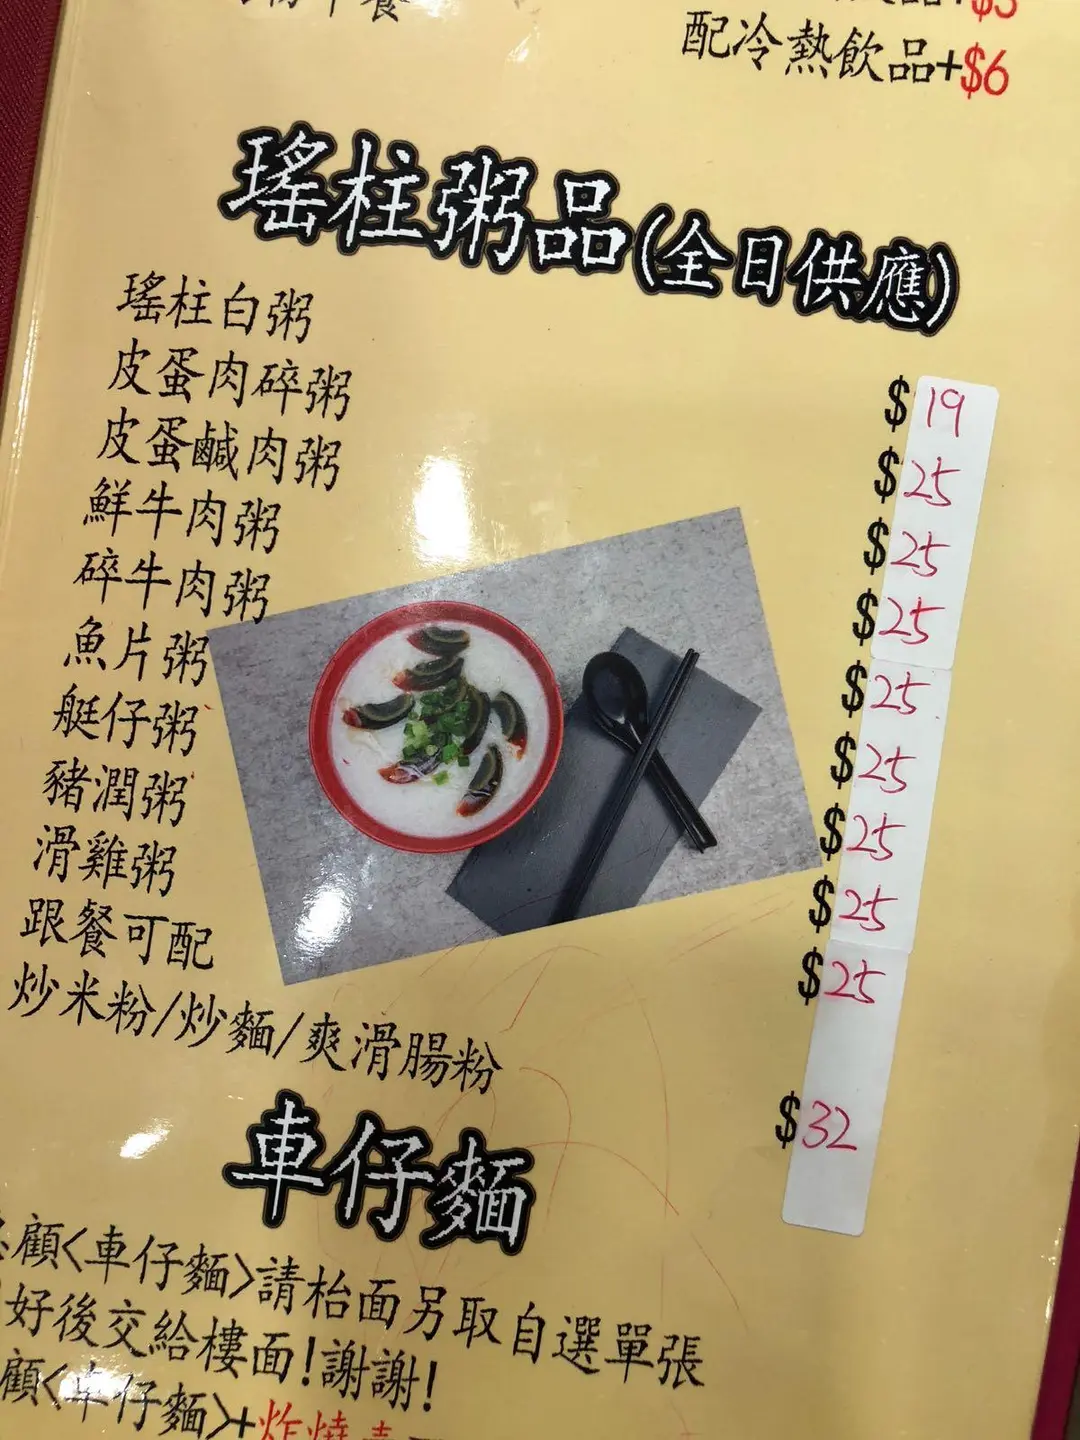 配冷熱飲品+$6
瑤柱粥品(全日供應)
瑤柱白粥 $19
皮蛋肉碎粥 $25
皮蛋鹹肉粥 $25
鮮牛肉粥 $25
碎牛肉粥 $25
魚片粥 $25
艇仔粥 $25
豬潤粥 $25
滑雞粥 $25
跟餐可配
炒米粉/炒麵/爽滑腸粉 $32
車仔麵
顧<車仔麵>請枱面另取自選單張
好後交給樓面!謝謝!
顧<車仔麵>+炸